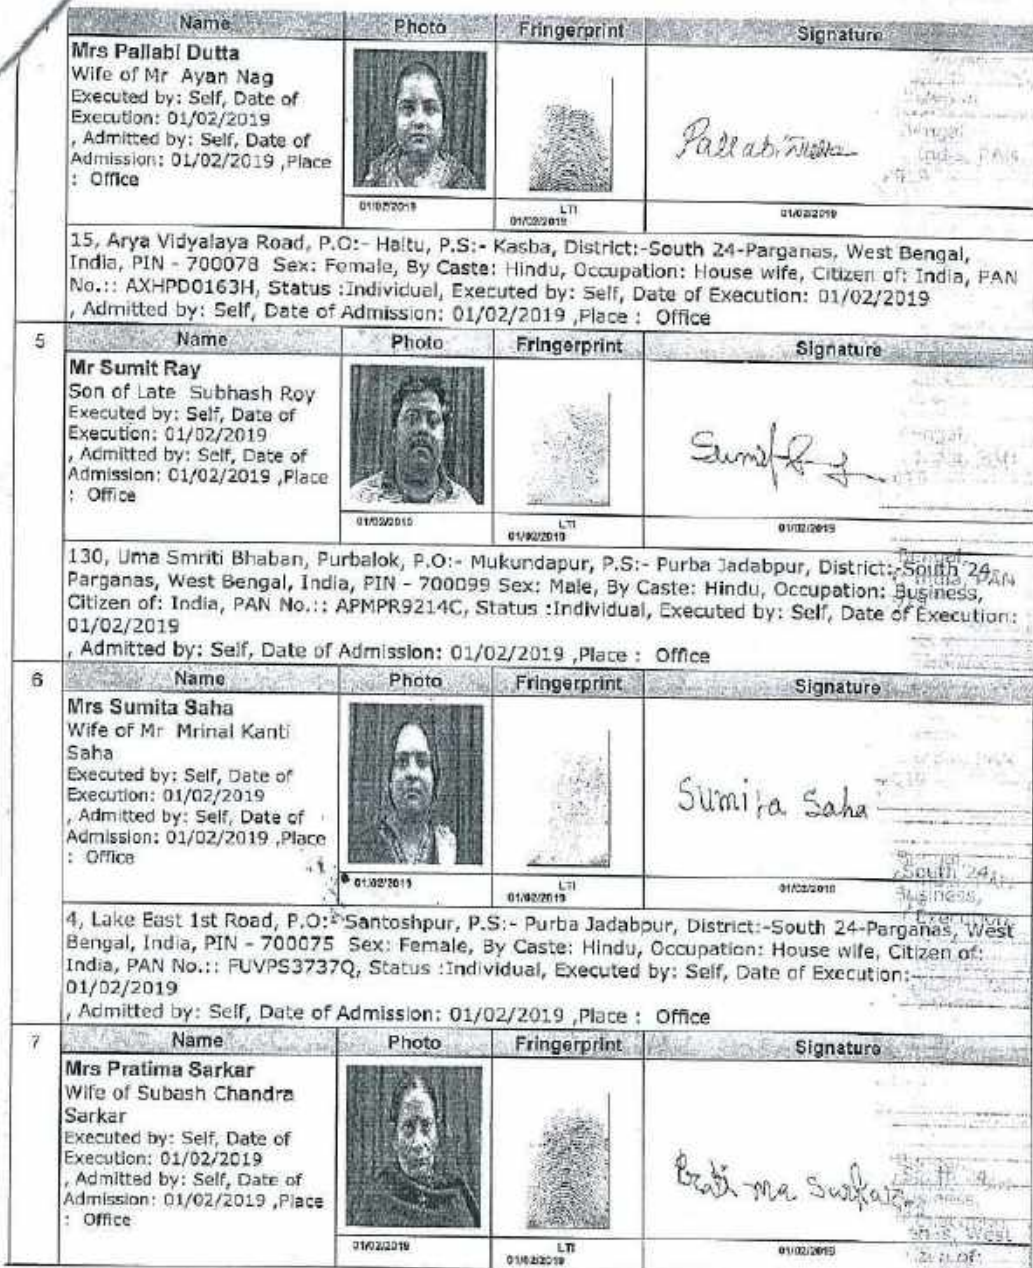 Name Photo Fringerprint Signature
Mrs Pallabi Dutta
Wife of Mr Ayan Nag
Executed by: Self, Date of
Execution: 01/02/2019
, Admitted by: Self, Date of
Admission: 01/02/2019 ,Place
: Office
Pallabi Dutta
01/02/2019 LTI 01/02/2019 01/02/2019
15, Arya Vidyalaya Road, P.O:- Haltu, P.S:- Kasba, District:-South 24-Parganas, West Bengal,
India, PIN - 700078 Sex: Female, By Caste: Hindu, Occupation: House wife, Citizen of: India, PAN
No.:: AXHPD0163H, Status :Individual, Executed by: Self, Date of Execution: 01/02/2019
, Admitted by: Self, Date of Admission: 01/02/2019 ,Place : Office
5 Name Photo Fringerprint Signature
Mr Sumit Ray
Son of Late Subhash Roy
Executed by: Self, Date of
Execution: 01/02/2019
, Admitted by: Self, Date of
Admission: 01/02/2019 ,Place
: Office
Sumit Ray
01/02/2019 LTI 01/02/2019 01/02/2019
130, Uma Smriti Bhaban, Purbalok, P.O:- Mukundapur, P.S:- Purba Jadabpur, District:-South 24-
Parganas, West Bengal, India, PIN - 700099 Sex: Male, By Caste: Hindu, Occupation: Business,
Citizen of: India, PAN No.:: APMPR9214C, Status :Individual, Executed by: Self, Date of Execution:
01/02/2019
, Admitted by: Self, Date of Admission: 01/02/2019 ,Place : Office
6 Name Photo Fringerprint Signature
Mrs Sumita Saha
Wife of Mr Mrinal Kanti
Saha
Executed by: Self, Date of
Execution: 01/02/2019
, Admitted by: Self, Date of
Admission: 01/02/2019 ,Place
: Office
Sumita Saha
01/02/2019 LTI 01/02/2019 01/02/2019
4, Lake East 1st Road, P.O:- Santoshpur, P.S:- Purba Jadabpur, District:-South 24-Parganas, West
Bengal, India, PIN - 700075 Sex: Female, By Caste: Hindu, Occupation: House wife, Citizen of:
India, PAN No.:: FUVPS3737Q, Status :Individual, Executed by: Self, Date of Execution:
01/02/2019
, Admitted by: Self, Date of Admission: 01/02/2019 ,Place : Office
7 Name Photo Fringerprint Signature
Mrs Pratima Sarkar
Wife of Subash Chandra
Sarkar
Executed by: Self, Date of
Execution: 01/02/2019
, Admitted by: Self, Date of
Admission: 01/02/2019 ,Place
: Office
Prati ma Sarkar
01/02/2019 LTI 01/02/2019 01/02/2019